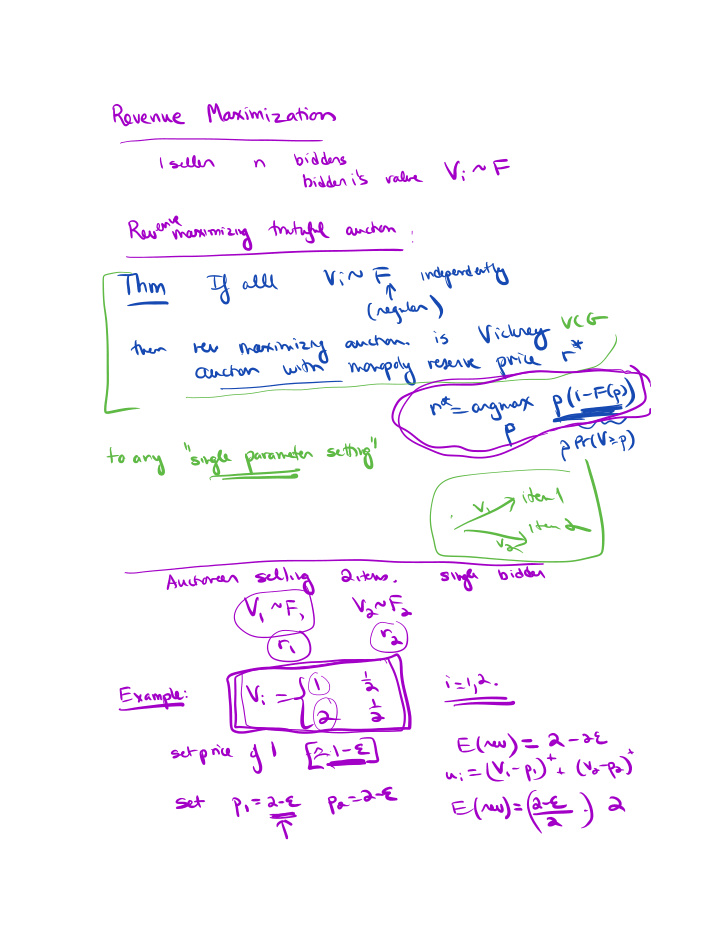 Revenue Maximization
1 seller n bidders
bidder i's value Vi ~ F
Revenue maximizing truthful auction:
Thm If all Vi ~ F independently
↑
(regular)
then rev maximizing auction is Vickrey VCG
auction with monopoly reserve price r*
r* = argmax p(1-F(p))
p
p Pr(V≥p)
to any "single parameter setting"
V1 → item 1
V2 → item 2
Auctioneer selling 2 items. single bidder
V1 ~ F1 V2 ~ F2
r1 r2
Example: Vi = { 1 1/2 i=1,2.
2 1/2
set price of 1 [≈ 1-ε] E(rev) = 2-2ε
ui = (V1-p1)⁺ + (V2-p2)⁺
set p1 = 2-ε p2 = 2-ε E(rev) = ((2-ε)/2 ·) 2
↑